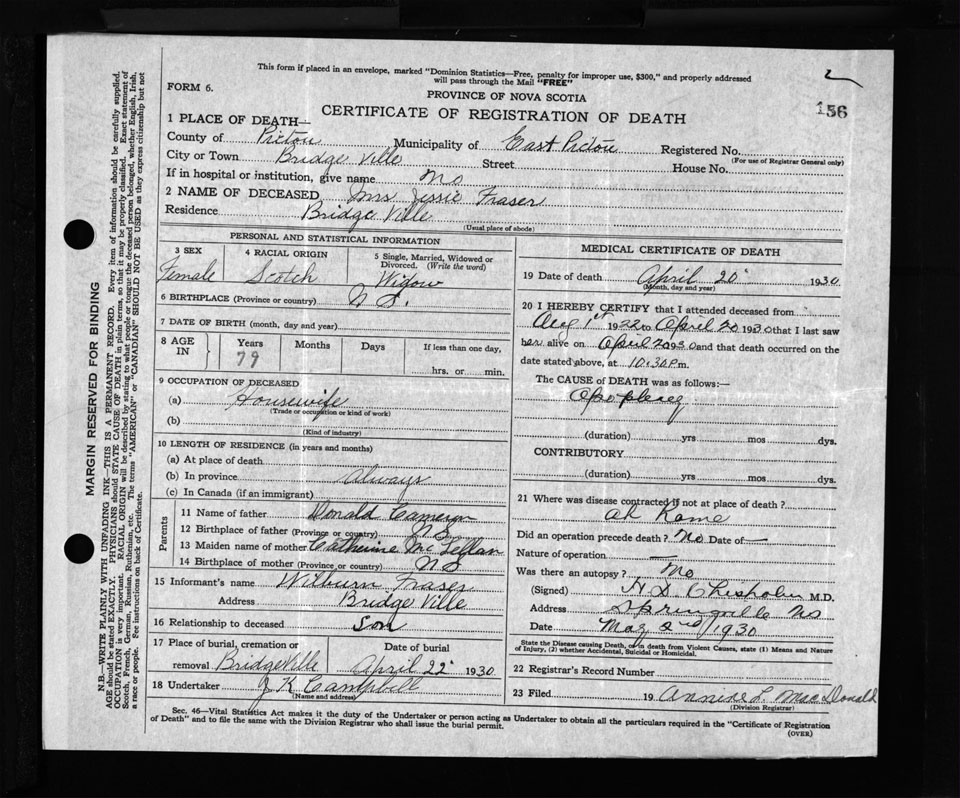 This form if placed in an envelope, marked "Dominion Statistics—Free, penalty for improper use, $300," and properly addressed
will pass through the Mail "FREE"
FORM 6.
PROVINCE OF NOVA SCOTIA
156
CERTIFICATE OF REGISTRATION OF DEATH
1 PLACE OF DEATH—
County of Pictou Municipality of East Pictou Registered No.
(For use of Registrar General only)
City or Town Bridge Ville Street House No.
If in hospital or institution, give name No
2 NAME OF DECEASED Mrs Jessie Fraser
Residence Bridge Ville
(Usual place of abode)
PERSONAL AND STATISTICAL INFORMATION
3 SEX 4 RACIAL ORIGIN 5 Single, Married, Widowed or Divorced. (Write the word)
Female Scotch Widow
6 BIRTHPLACE (Province or country) N S.
7 DATE OF BIRTH (month, day and year)
8 AGE IN Years Months Days If less than one day,
79 hrs. or min.
9 OCCUPATION OF DECEASED
(a) Housewife
(Trade or occupation or kind of work)
(b)
(Kind of industry)
10 LENGTH OF RESIDENCE (in years and months)
(a) At place of death
(b) In province Always
(c) In Canada (if an immigrant)
Parents
11 Name of father Donald Cameron
12 Birthplace of father (Province or country) N S
13 Maiden name of mother Catherine McLellan
14 Birthplace of mother (Province or country) N S
15 Informant's name Wilburn Fraser
Address Bridge Ville
16 Relationship to deceased Son
17 Place of burial, cremation or removal Bridgeville Date of burial April 22 1930
18 Undertaker J K Campbell
(Name and address)
MEDICAL CERTIFICATE OF DEATH
19 Date of death April 20 1930
(Month, day and year)
20 I HEREBY CERTIFY that I attended deceased from
Aug 1st 1922 to April 20 1930 that I last saw
her alive on April 20 1930 and that death occurred on the
date stated above, at 10:30 P.m.
The CAUSE of DEATH was as follows:—
Apoplexy
(duration) yrs mos dys.
CONTRIBUTORY
(duration) yrs mos dys.
21 Where was disease contracted if not at place of death?
At Home
Did an operation precede death? No Date of —
Nature of operation —
Was there an autopsy? No
(Signed) H. D. Chisholm M.D.
Address Springville NS
Date May 2nd 1930
State the Disease causing Death, or in death from Violent Causes, state (1) Means and Nature
of Injury, (2) whether Accidental, Suicidal or Homicidal.
22 Registrar's Record Number
23 Filed 19 Annine L. MacDonald
(Division Registrar)
Sec. 46—Vital Statistics Act makes it the duty of the Undertaker or person acting as Undertaker to obtain all the particulars required in the "Certificate of Registration
of Death" and to file the same with the Division Registrar who shall issue the burial permit.
(OVER)
MARGIN RESERVED FOR BINDING
N.B.—WRITE PLAINLY WITH UNFADING INK—THIS IS A PERMANENT RECORD. Every item of information should be carefully supplied.
AGE should be stated EXACTLY. PHYSICIANS should STATE CAUSE OF DEATH in plain terms, so that it may be properly classified. Exact statement of
OCCUPATION is very important. RACIAL ORIGIN will be described by stating to what people or tongue the deceased person belonged, whether English, Irish,
Scotch, French, German, Russian, Ruthenian, etc. The terms "AMERICAN" or "CANADIAN" SHOULD NOT BE USED as they express citizenship but not
a race or people. See instructions on back of Certificate.